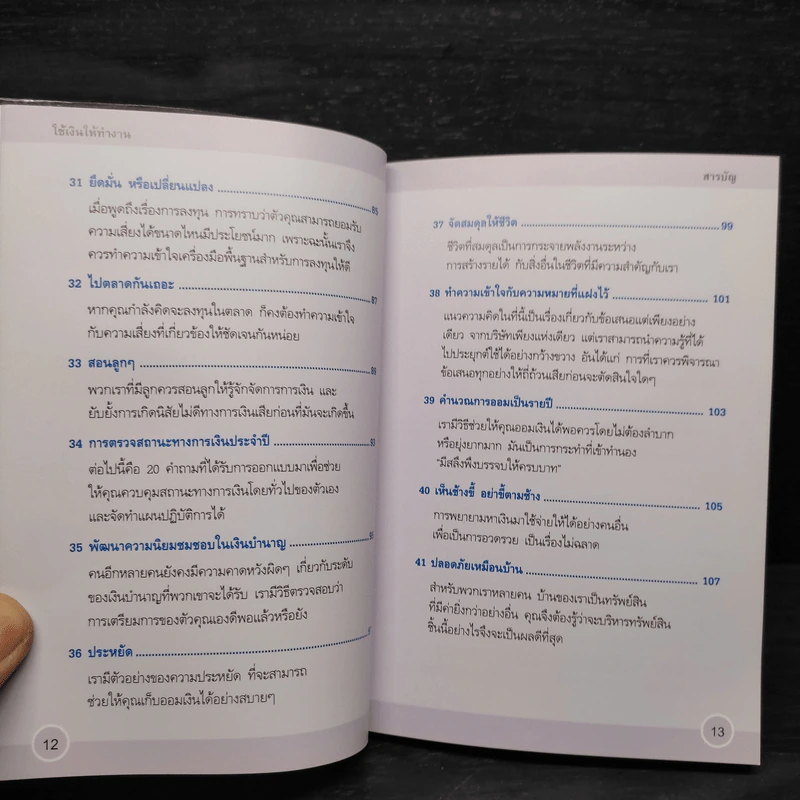 ใช้เงินให้ทำงาน
31 ยึดมั่น หรือเปลี่ยนแปลง ........ 85
เมื่อพูดถึงเรื่องการลงทุน การทราบว่าตัวคุณสามารถยอมรับ
ความเสี่ยงได้ขนาดไหนมีประโยชน์มาก เพราะฉะนั้นเราจึง
ควรทำความเข้าใจเครื่องมือพื้นฐานสำหรับการลงทุนให้ดี
32 ไปตลาดกันเถอะ ........ 87
หากคุณกำลังคิดจะลงทุนในตลาด ก็คงต้องทำความเข้าใจ
กับความเสี่ยงที่เกี่ยวข้องให้ชัดเจนกันหน่อย
33 สอนลูกๆ ........ 89
พวกเราที่มีลูกควรสอนลูกให้รู้จักจัดการการเงิน และ
ยับยั้งการเกิดนิสัยไม่ดีทางการเงินเสียก่อนที่มันจะเกิดขึ้น
34 การตรวจสถานะทางการเงินประจำปี ........ 93
ต่อไปนี้คือ 20 คำถามที่ได้รับการออกแบบมาเพื่อช่วย
ให้คุณควบคุมสถานะทางการเงินโดยทั่วไปของตัวเอง
และจัดทำแผนปฏิบัติการได้
35 พัฒนาความนิยมชมชอบในเงินบำนาญ ........
คนอีกหลายคนยังคงมีความคาดหวังผิดๆ เกี่ยวกับระดับ
ของเงินบำนาญที่พวกเขาจะได้รับ เรามีวิธีตรวจสอบว่า
การเตรียมการของตัวคุณเองดีพอแล้วหรือยัง
36 ประหยัด ........
เรามีตัวอย่างของความประหยัด ที่จะสามารถ
ช่วยให้คุณเก็บออมเงินได้อย่างสบายๆ
12
สารบัญ
37 จัดสมดุลให้ชีวิต ........ 99
ชีวิตที่สมดุลเป็นการกระจายพลังงานระหว่าง
การสร้างรายได้ กับสิ่งอื่นในชีวิตที่มีความสำคัญกับเรา
38 ทำความเข้าใจกับความหมายที่แฝงไว้ ........ 101
แนวความคิดในที่นี้เป็นเรื่องเกี่ยวกับข้อเสนอแต่เพียงอย่าง
เดียว จากบริษัทเพียงแห่งเดียว แต่เราสามารถนำความรู้ที่ได้
ไปประยุกต์ใช้ได้อย่างกว้างขวาง อันได้แก่ การที่เราควรพิจารณา
ข้อเสนอทุกอย่างให้ถี่ถ้วนเสียก่อนจะตัดสินใจใดๆ
39 คำนวณการออมเป็นรายปี ........ 103
เรามีวิธีช่วยให้คุณออมเงินได้พอควรโดยไม่ต้องลำบาก
หรือยุ่งยากมาก มันเป็นการกระทำที่เข้าทำนอง
"มีสลึงพึงบรรจบให้ครบบาท"
40 เห็นช้างขี้ อย่าขี้ตามช้าง ........ 105
การพยายามหาเงินมาใช้จ่ายให้ได้อย่างคนอื่น
เพื่อเป็นการอวดรวย เป็นเรื่องไม่ฉลาด
41 ปลอดภัยเหมือนบ้าน ........ 107
สำหรับพวกเราหลายคน บ้านของเราเป็นทรัพย์สิน
ที่มีค่ายิ่งกว่าอย่างอื่น คุณจึงต้องรู้ว่าจะบริหารทรัพย์สิน
ชิ้นนี้อย่างไรจึงจะเป็นผลดีที่สุด
13